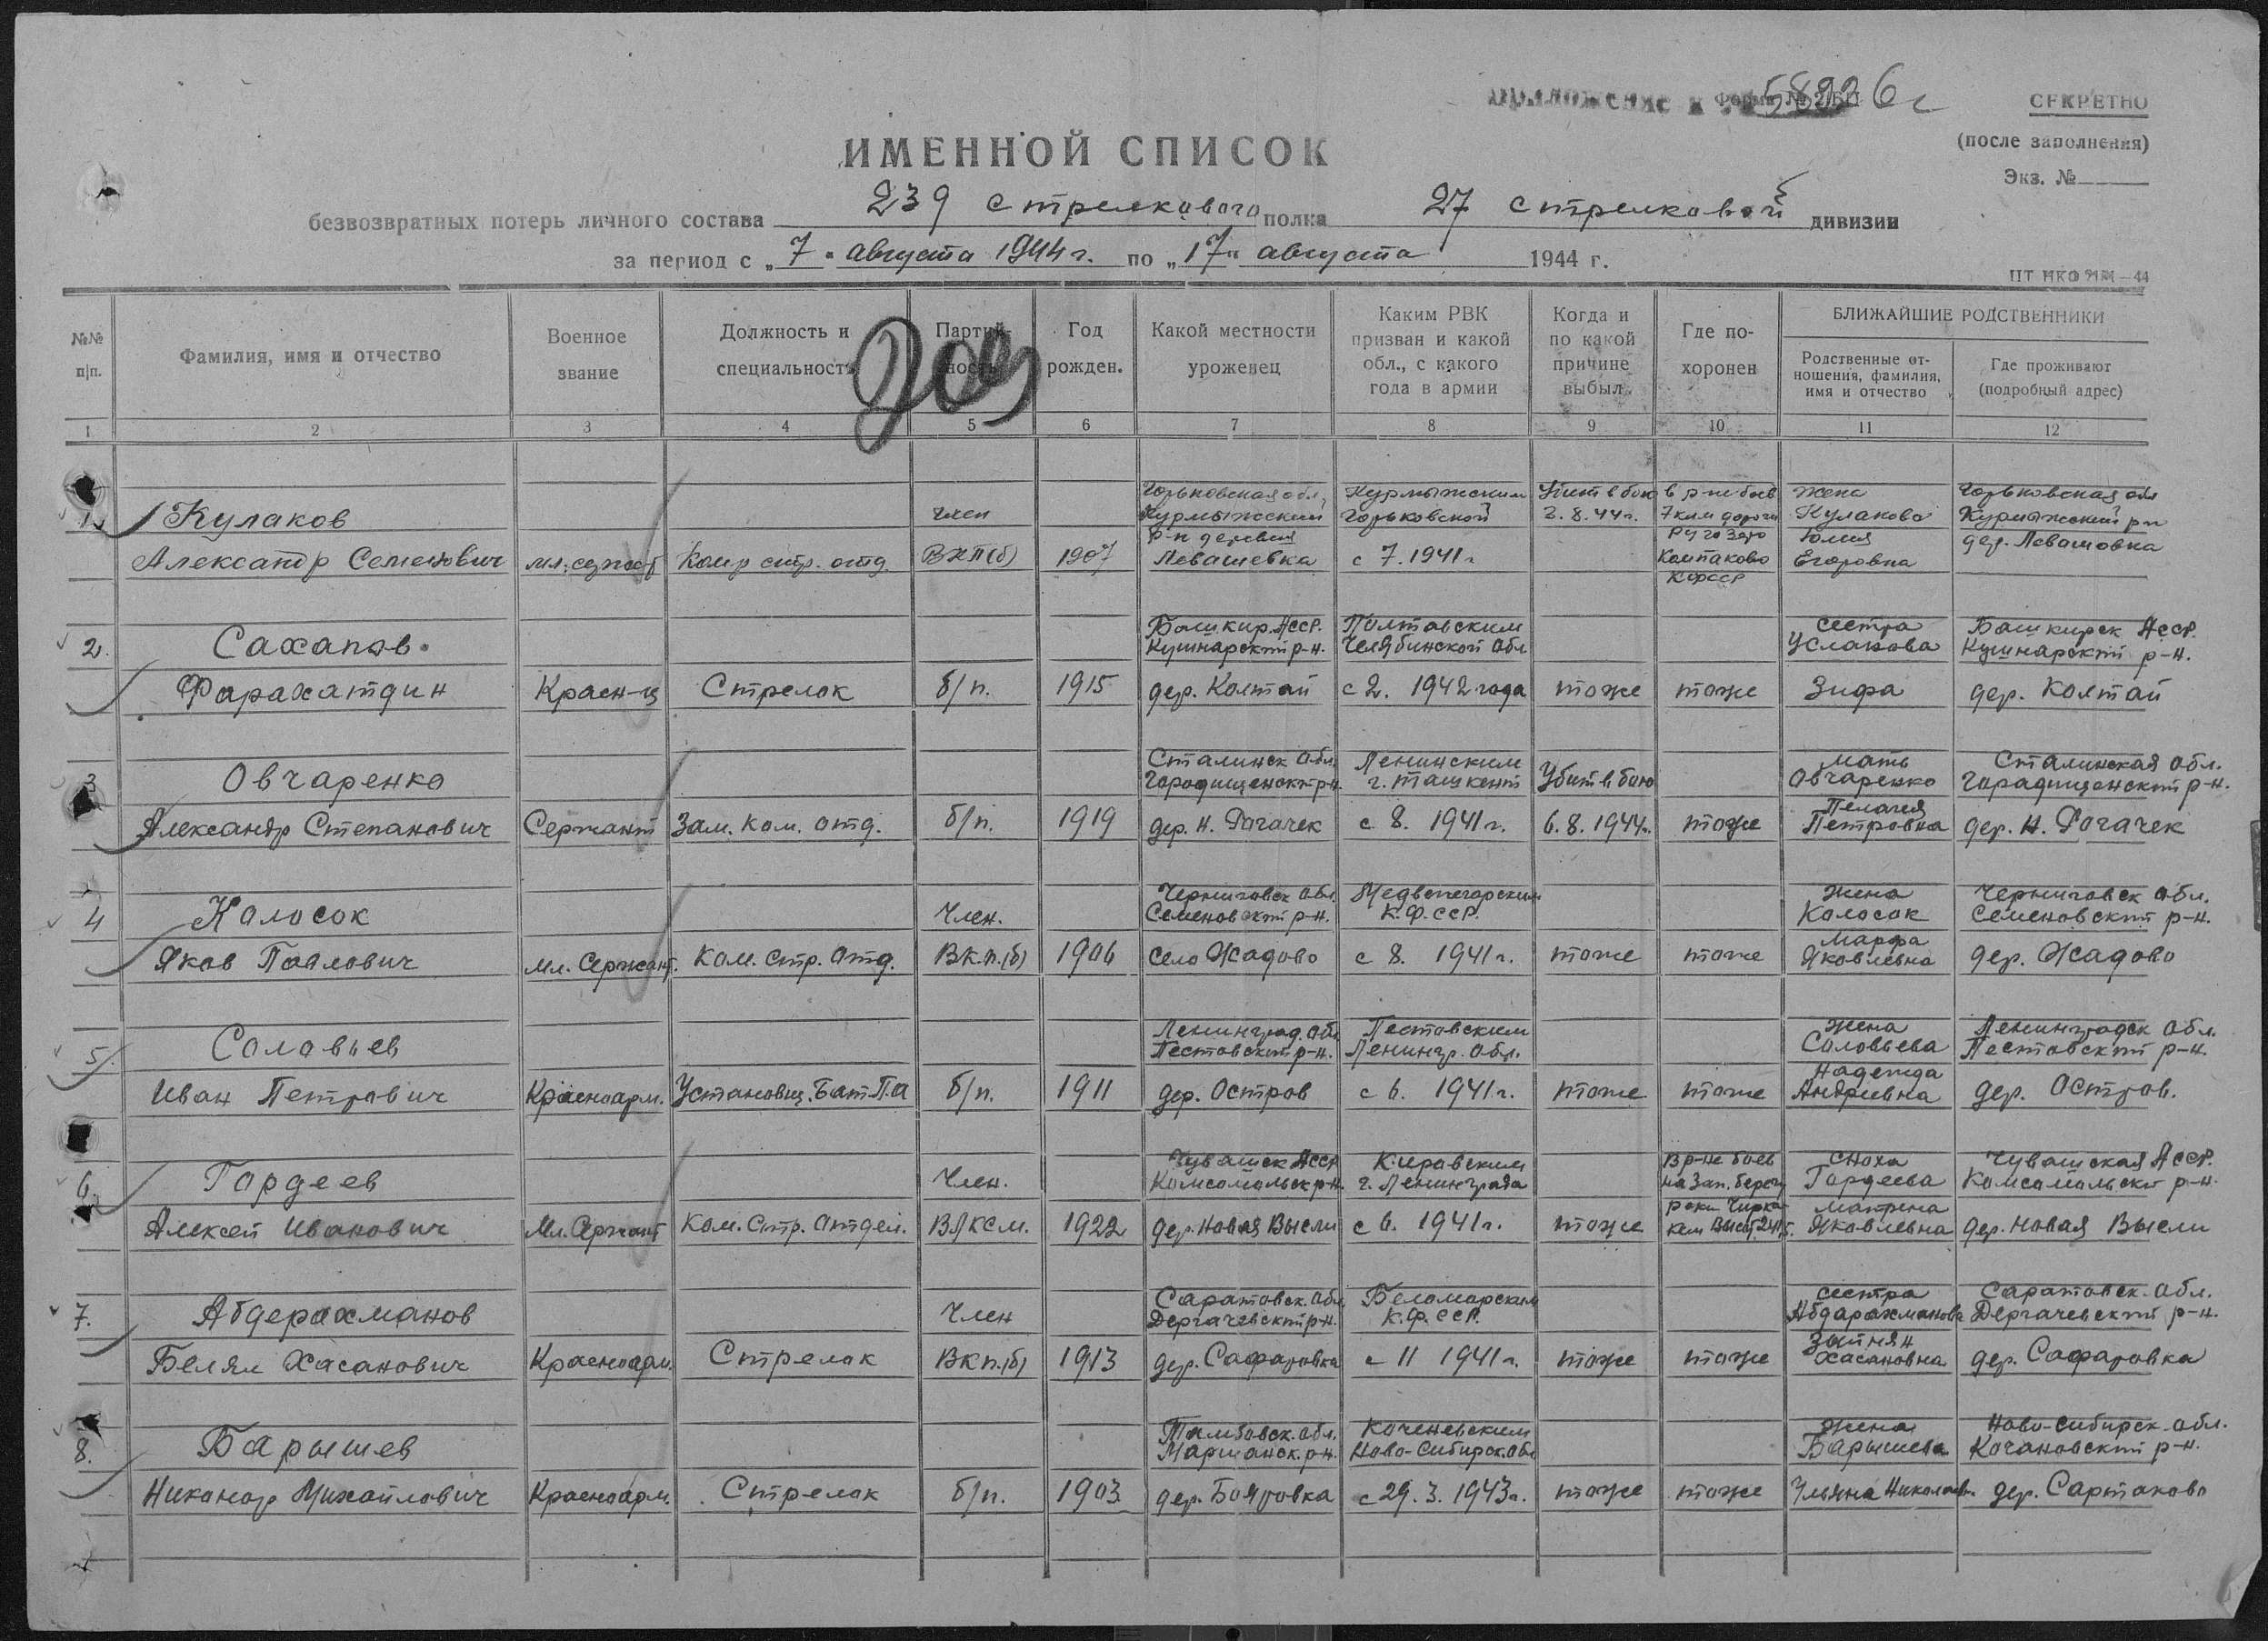 приложение к 58926с
Форма № 2/БП
СЕКРЕТНО
(после заполнения)
Экз. №
ИМЕННОЙ СПИСОК
безвозвратных потерь личного состава 239 стрелкового полка 27 стрелковой дивизии
за период с „7" августа 1944 г. по „17" августа 1944 г.
№№ п|п.
Фамилия, имя и отчество
Военное звание
Должность и специальность
Партийность
Год рожден.
Какой местности уроженец
Каким РВК призван и какой обл., с какого года в армии
Когда и по какой причине выбыл
Где похоронен
БЛИЖАЙШИЕ РОДСТВЕННИКИ
Родственные отношения, фамилия, имя и отчество
Где проживают (подробный адрес)
1 2 3 4 5 6 7 8 9 10 11 12
1. Кулаков Александр Семенович мл. сержант Комр стр. отд. член ВКП(б) 1907 Горьковская обл, Курмышский р-н деревня Левашевка Курмышским Горьковской с 7. 1941 г Убит в бою 2.8.44г. в р-не боев 7 клм дороги Колпаково КФССР жена Кулакова Юлия Егоровна Горьковская обл Курмышский р-н дер. Левашовка
2. Сахапов Фарахатдин Красн-ц Стрелок б/п. 1915 Башкир. АССР. Кушнарский р-н. дер.Колтай Полтавским Челябинской обл с 2. 1942 года тоже тоже сестра Усланова Зифа Башкирск АССР. Кушнарский р-н. дер. Колтай
3 Овчаренко Александр Степанович Сержант Зам. ком. отд. б/п. 1919 Сталинск Обл. Городищенский р-н. дер. Н. Рогачек Ленинским г. Ташкент с 8. 1941 г. Убит в бою 6.8.1944г. тоже мать Овчаренко Пелагея Петровна Сталинская обл. Гарадищенский р-н. дер. Н. Рогачек
4 Колосок Яков Павлович Мл. Сержант. Ком. Стр. Отд. Член. ВКП.(б) 1906 Черниговск Обл. Семеновский р-н. село Жадово Медвежегорским К.Ф.ССР. с 8. 1941 г. тоже тоже жена Колосок Марфа Яковлевна Черниговск обл. Семеновский р-н. дер. Жадово
5. Соловьев Иван Петрович Красноарм. Установщ. Бат. П.А б/п. 1911 Ленинград. Обл. Пестовский р-н. дер. Остров Пестовским Ленингр. Обл. с 6. 1941 г. тоже тоже жена Соловьева Надежда Андреевна Ленинградск обл. Пестовский р-н. дер. Остров.
6. Гордеев Алексей Иванович Мл. Сержант Ком. Стр. Отдел. Член. ВЛКСМ. 1922 Чувашск АССР Комсомольск р-н. дер. Новая Высли Кировским г. Ленинграда с 6. 1941 г. тоже В р-не боев на Зап. берегу реки Чирка-кем Высот. 241,5. сноха Гордеева Матрена Яковлевна Чувашская АССР. Комсомольский р-н. дер. Новая Высли
7. Абдерахманов Белял Хасанович Красноарм. Стрелок Член ВКП.(б) 1913 Саратовск. Обл. Дергачевский р-н. дер. Сафаровка Беломорским К.Ф.ССР. с 11 1941 г. тоже тоже сестра Абдарахманова Хасановна Саратовск. Обл. Дергачевский р-н. дер. Сафаровка
8. Барышев Никанор Михайлович Красноарм. Стрелок б/п. 1903 Тамбовск. обл. Маршанск. р-н. дер. Бояровка Коченевским Ново-Сибирск. Обл с 29. 3. 1943 г. тоже тоже жена Барышева Ульяна Николаев. Ново-Сибирск. обл. Кочановский р-н. дер. Сартаково